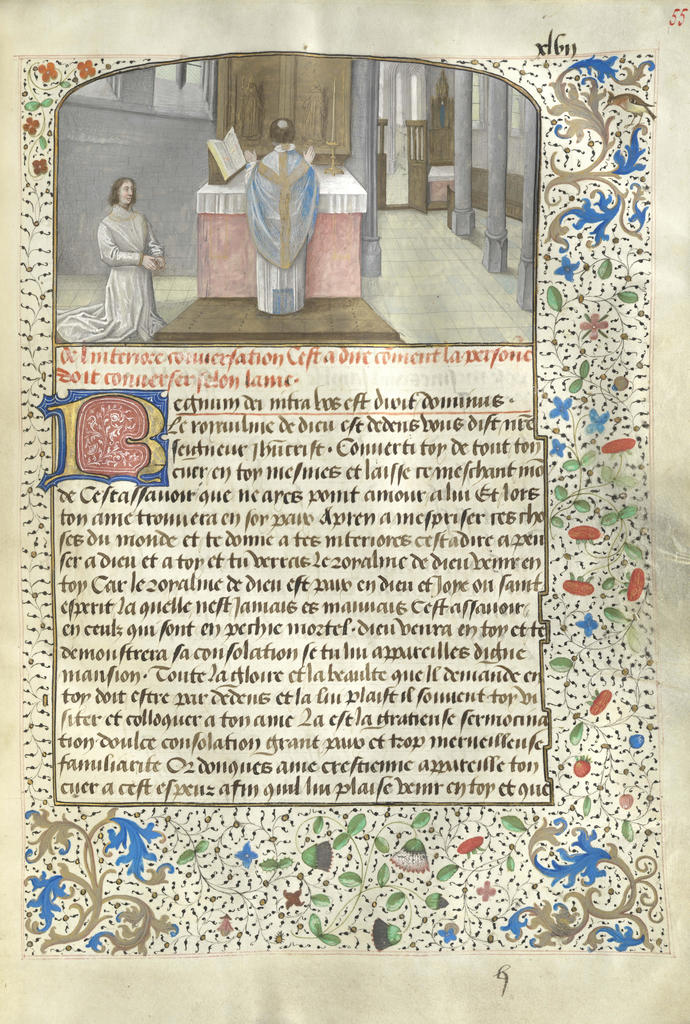 55
xlvii
De linteriore conversation Cest a dire coment la persone
doit converser selon lame.
Regnum dei intra vos est dicit dominus.
Le royaulme de dieu est dedens vous dist nr̄e
seigneur ihūcrist. Converti toy de tout ton
cuer en toy mesmes et laisse ce meschant mō
de Cestassavoir que ne ayes point amour a lui Et lors
ton ame trouvera en soy paix Apren a mespriser ces cho
ses du monde et te donne a tes interiores cestadire a pen
ser a dieu et a toy et tu verras le royalme de dieu venir en
toy Car le royalme de dieu est paix en dieu et Joye ou saint
esperit La quelle nest Jamais es mauvais Cest assavoir
en ceulx qui sont en pechie mortel. dieu venra en toy et te
demoustrera sa consolation se tu lui appareilles digne
mansion. Toute la gloire et la beaulte que il demande en
toy doit estre par dedens et la lui plaist il souvent toy vi
siter et colloquer a ton ame La est la gratieuse sermocina
tion doulce consolation grant paix et trop merveilleuse
familiarite Or donques ame crestienne appareille ton
cuer a cest espeux afin quil lui plaise venir en toy et que